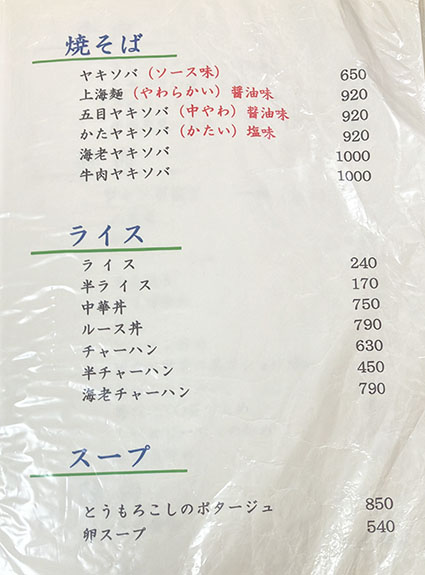 焼そば
ヤキソバ（ソース味） 650
上海麵（やわらかい）醤油味 920
五目ヤキソバ（中やわ）醤油味 920
かたヤキソバ（かたい）塩味 920
海老ヤキソバ 1000
牛肉ヤキソバ 1000
ライス
ライス 240
半ライス 170
中華丼 750
ルース丼 790
チャーハン 630
半チャーハン 450
海老チャーハン 790
スープ
とうもろこしのポタージュ 850
卵スープ 540